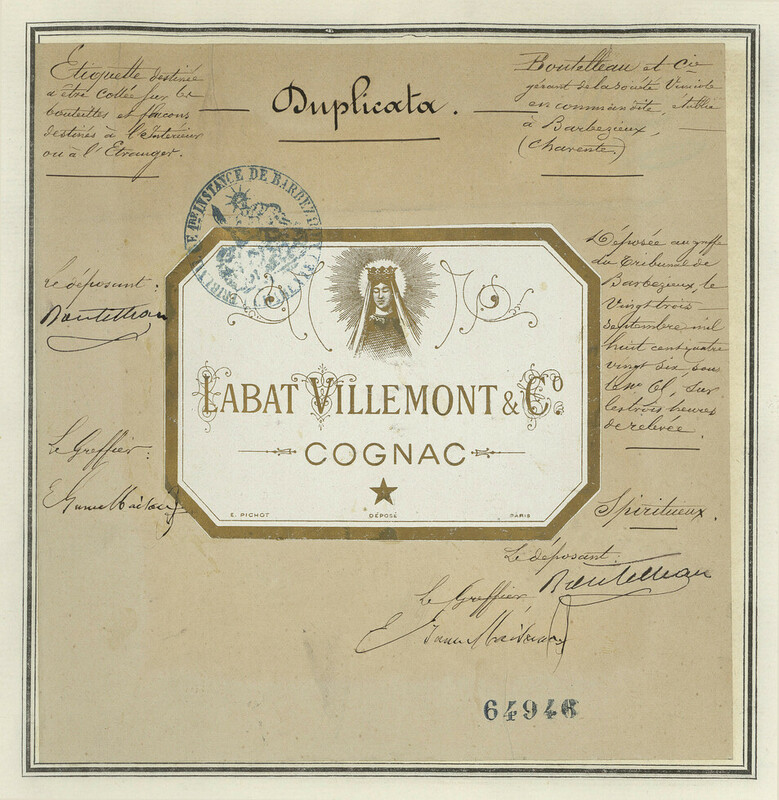 Duplicata.
Etiquette destinée
a être collée sur les
bouteilles et flacons
destinés à l'Intérieur
ou à l'Etranger.
Boutelleau et Cie
gérant de la société Vinicole
en commandite, établie
à Barbezieux,
(Charente)
1re INSTANCE DE BARBEZ
Le déposant:
Boutelleau
Le Greffier:
LABAT VILLEMONT & Co.
COGNAC
E. PICHOT DÉPOSÉ PARIS
Déposée au greffe
du Tribunal de
Barbezieux, le
Vingt trois
septembre mil
huit cent quatre
vingt dix sous
le No 61, sur
les trois heures
de relevée.
Spiritueux.
Le déposant:
Boutelleau
Le Greffier,
64946